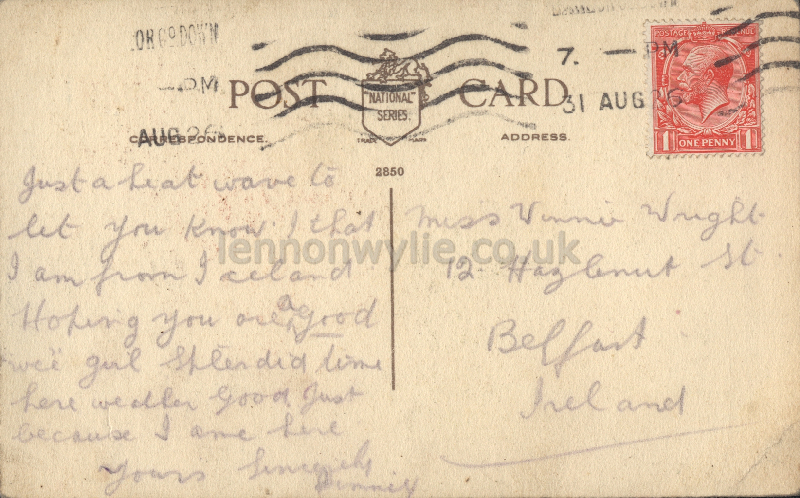 OR GO. DOWN
7. — PM
— PM
31 AUG 26
AUG 26
POSTAGE REVENUE
1 ONE PENNY 1
POST CARD
"NATIONAL" SERIES.
TRADE MARK
CORRESPONDENCE.
ADDRESS.
2850
Just a heat wave to
let you know I that
I am from Ireland
Hoping you are a good
wee girl splendid time
here weather good Just
because I am here
Yours Sincerely
Miss Winnie Wright
12 Hazlenut St
Belfast
Ireland
lennonwylie.co.uk